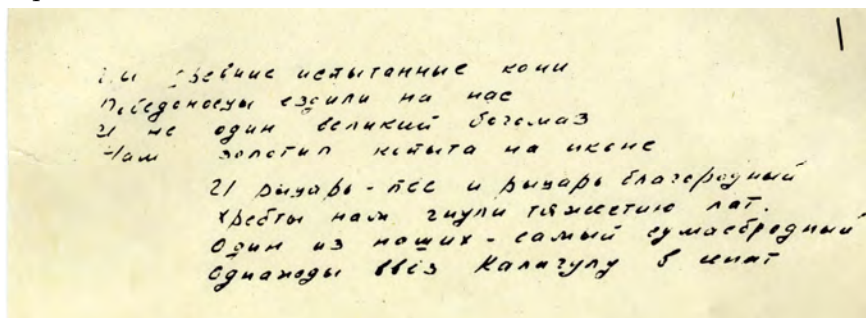 Мы древние испытанные кони
Победоносцы ездили на нас
И не один великий богомаз
Нам золотил копыта на иконе
И рыцарь-пес и рыцарь благородный
Хребты нам гнули тяжестию лат.
Один из наших - самый сумасбродный
Однажды ввёз Калигулу в сенат